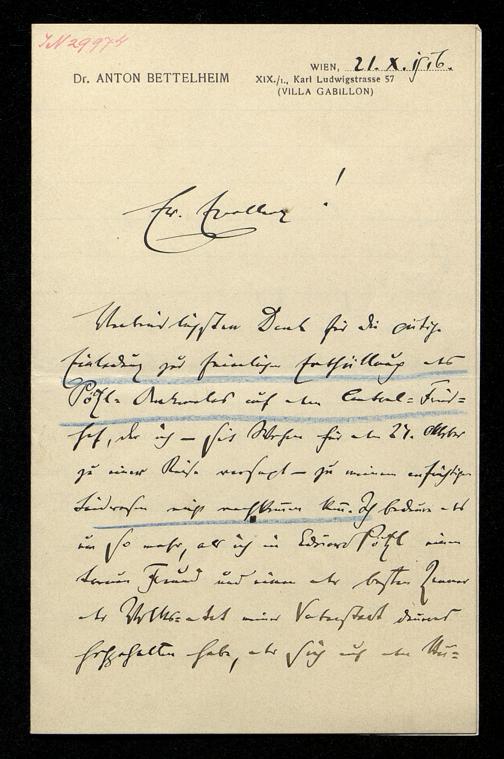 IN 29974
WIEN, 21. X. 1916.
Dr. ANTON BETTELHEIM
XIX./1., Karl Ludwigstrasse 57
(VILLA GABILLON)
Ew. Excellenz!
Verbindlichsten Dank für die gütige
Einladung zur feierlichen Enthüllung des
Pötzl-Denkmales auf dem Central=Fried=
hof, der ich – seit Wochen für den 24. Oktober
zu einer Reise – zu meinem aufrichtigen
Leidwesen nicht nachkommen kann. Ich bedaure das
um so mehr, als ich in Eduard Pötzl einen
treuen Freund und einen der besten Kenner
der meiner Vaterstadt dauernd
hochgehalten habe, der sich auf den